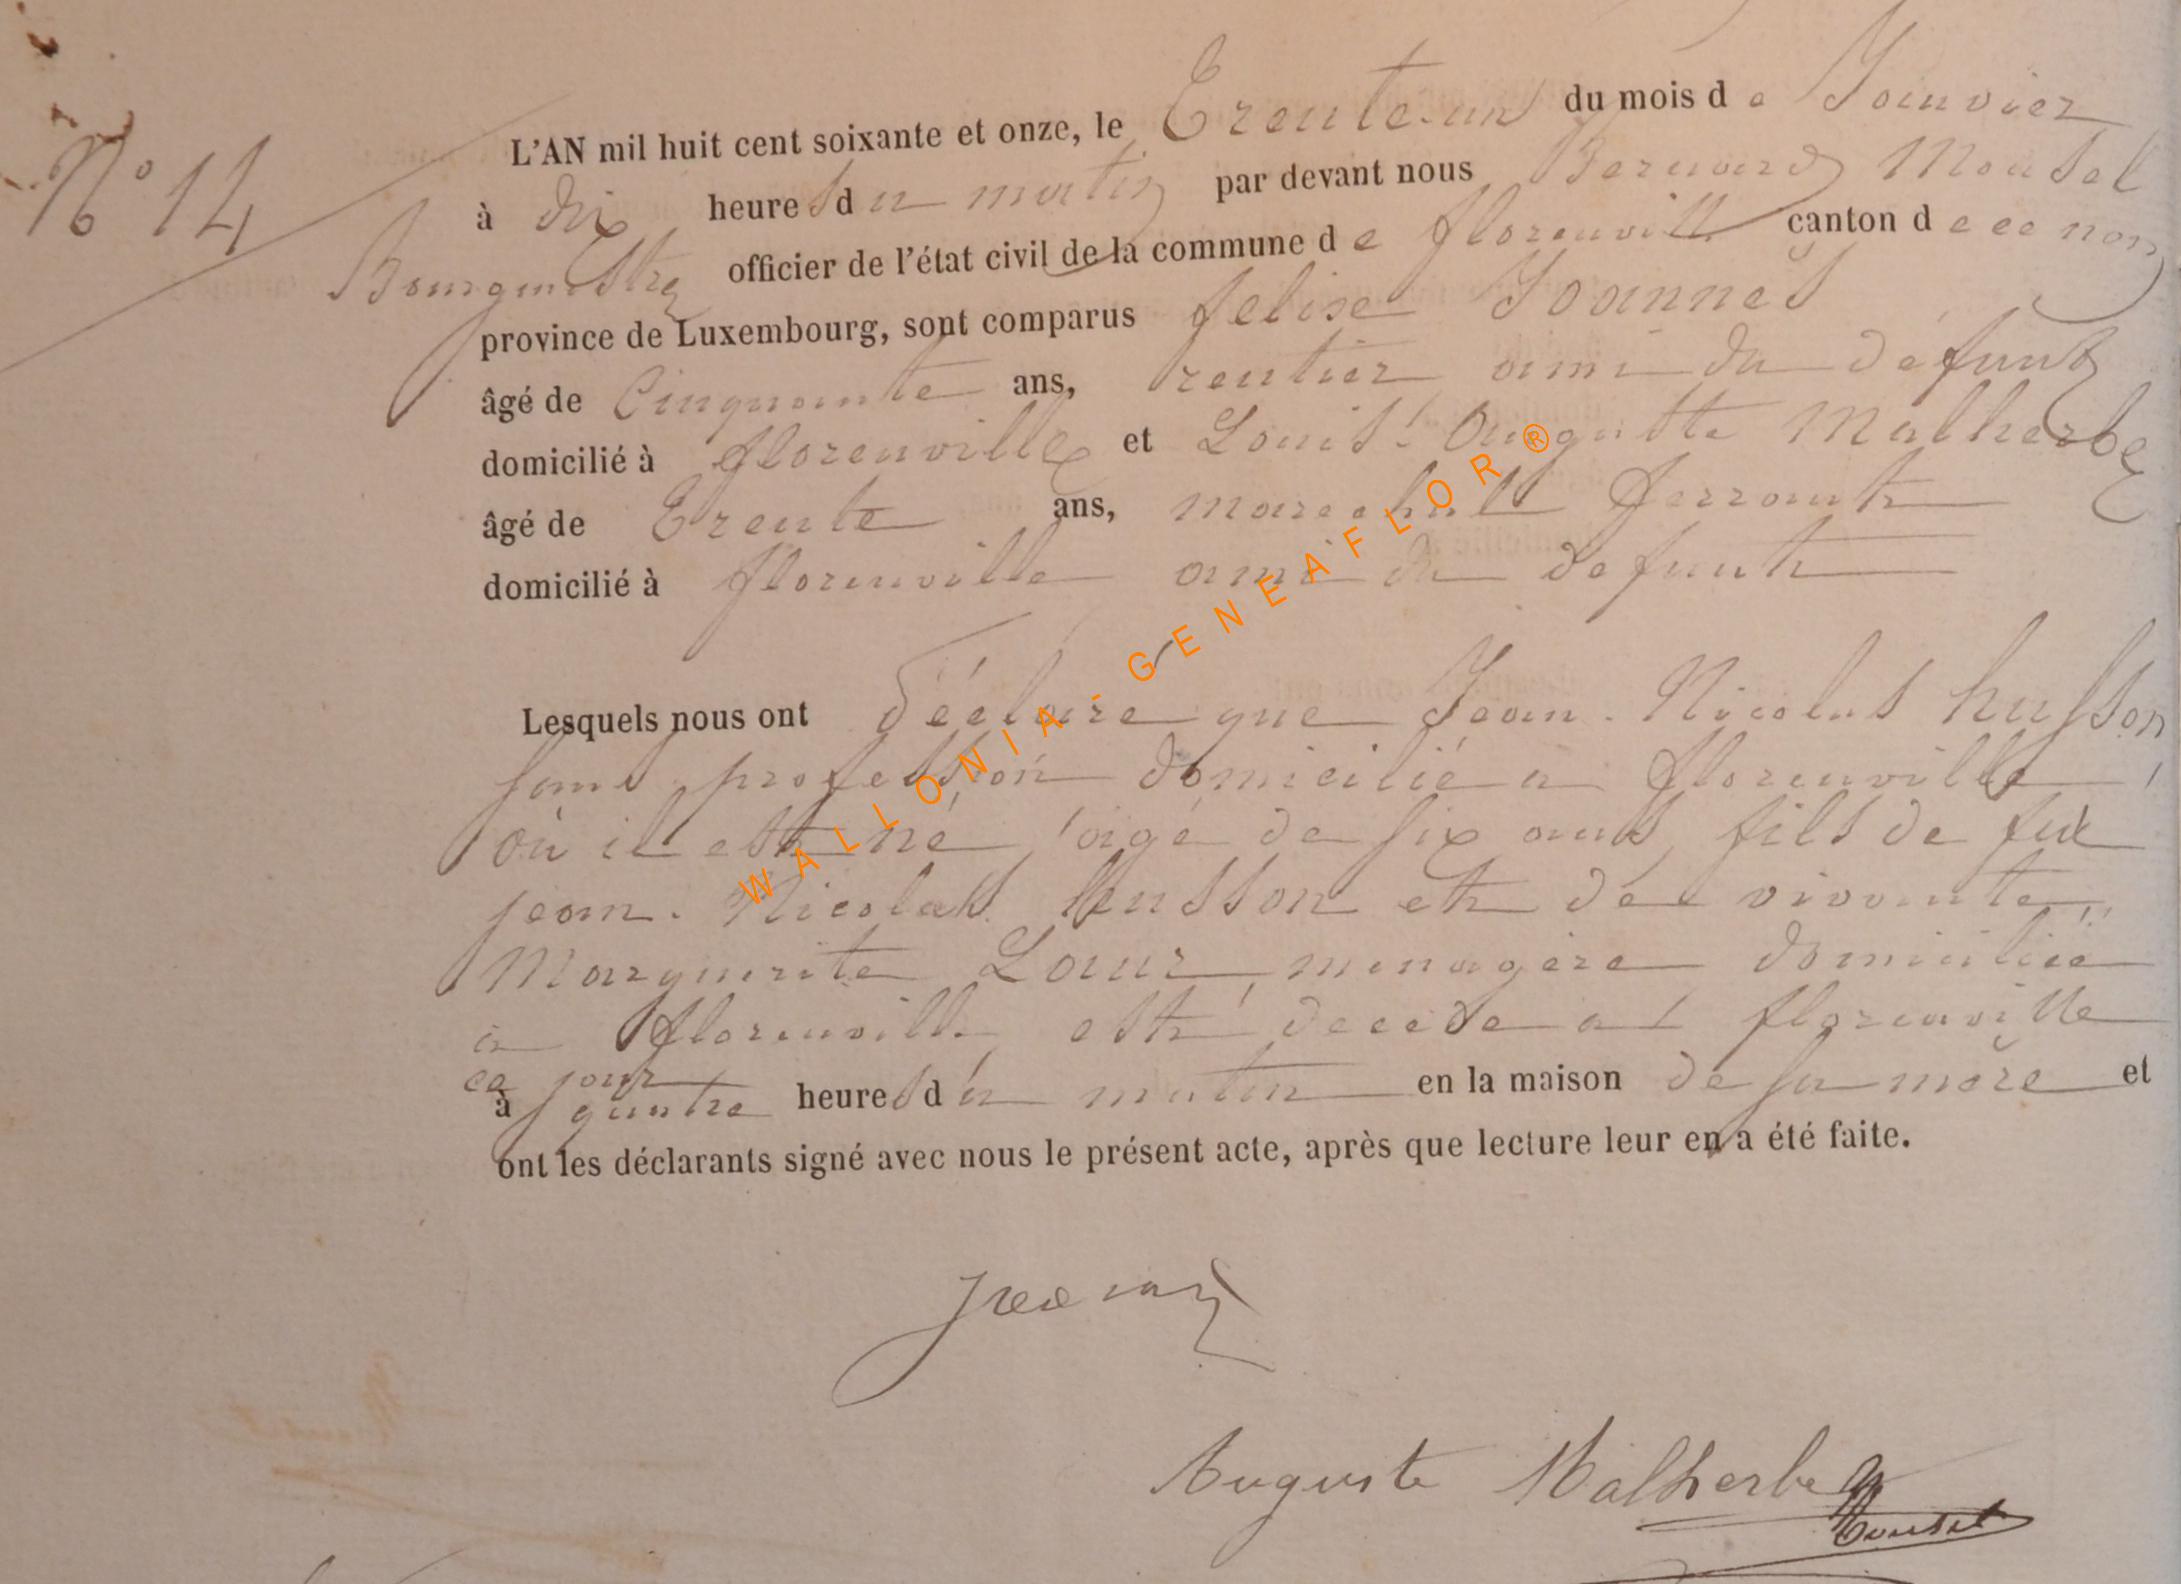 N° 14
L'AN mil huit cent soixante et onze, le Trente-un du mois de Janvier
à dix heures du matin par devant nous Bernard Mousel
Bourgmestre officier de l'état civil de la commune de florenville canton de ce nom
province de Luxembourg, sont comparus felise Joannes
âgé de Cinquante ans, rentier ami du défunt
domicilié à florenville et Louis-Auguste Malherbe
âgé de Trente ans, marechall ferrant
domicilié à florenville ami du defunt
Lesquels nous ont déclare que Jean-Nicolas husson
sans profession domicilié a florenville,
où il est né, age de six ans, fils de feu
jean-Nicolas husson et de vivante
Marguerite Laur, menagère domiciliée
a florenville est decede a florenville
ce jour
à quatre heures du matin en la maison de sa mère et
ont les déclarants signé avec nous le présent acte, après que lecture leur en a été faite.
Auguste Malherbe
Mousel
WALLONIA-GENEAFLOR®